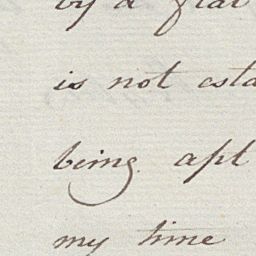 by a
is not
being apt
my time